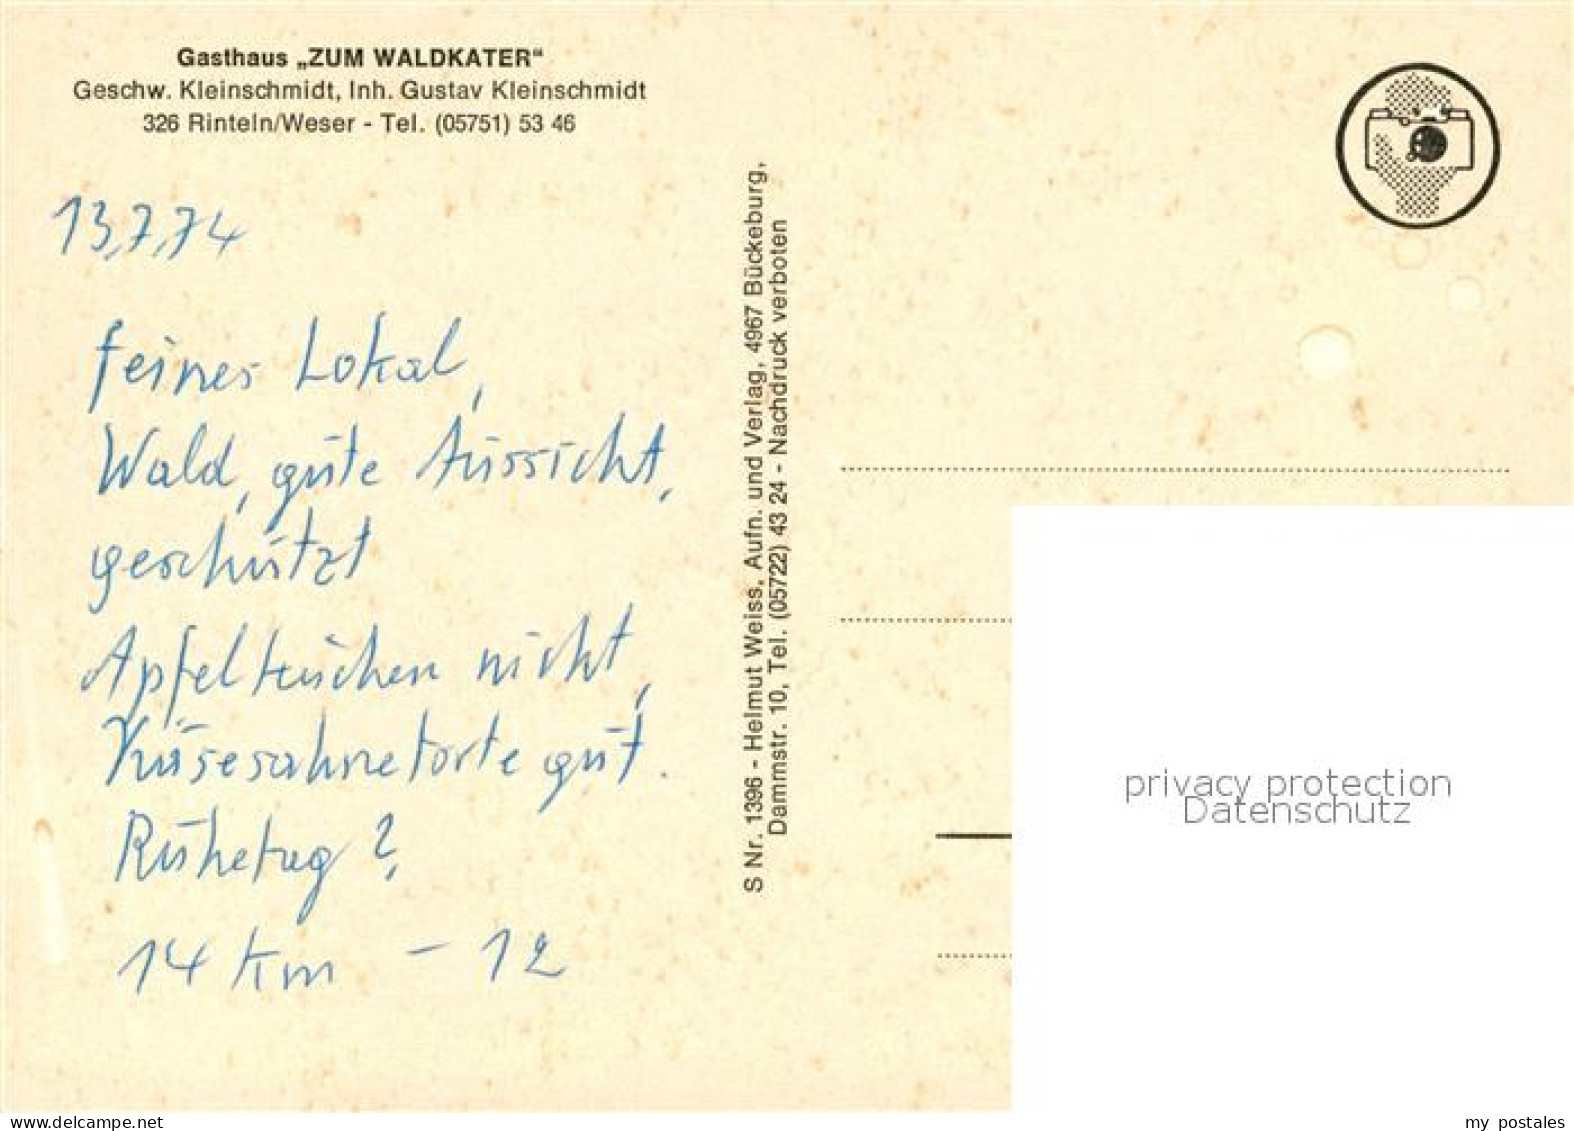 Gasthaus „ZUM WALDKATER“
Geschw. Kleinschmidt, Inh. Gustav Kleinschmidt
326 Rinteln/Weser - Tel. (05751) 53 46
13.7.74
feines Lokal,
Wald, gute Aussicht,
geschützt
Apfelkuchen nicht,
Käsesahnetorte gut.
Ruhetag?
14 km - 12
S Nr. 1396 - Helmut Weiss, Aufn. und Verlag, 4967 Bückeburg,
Dammstr. 10, Tel. (05722) 43 24 - Nachdruck verboten
privacy protection
Datenschutz
www.delcampe.net
my_postales